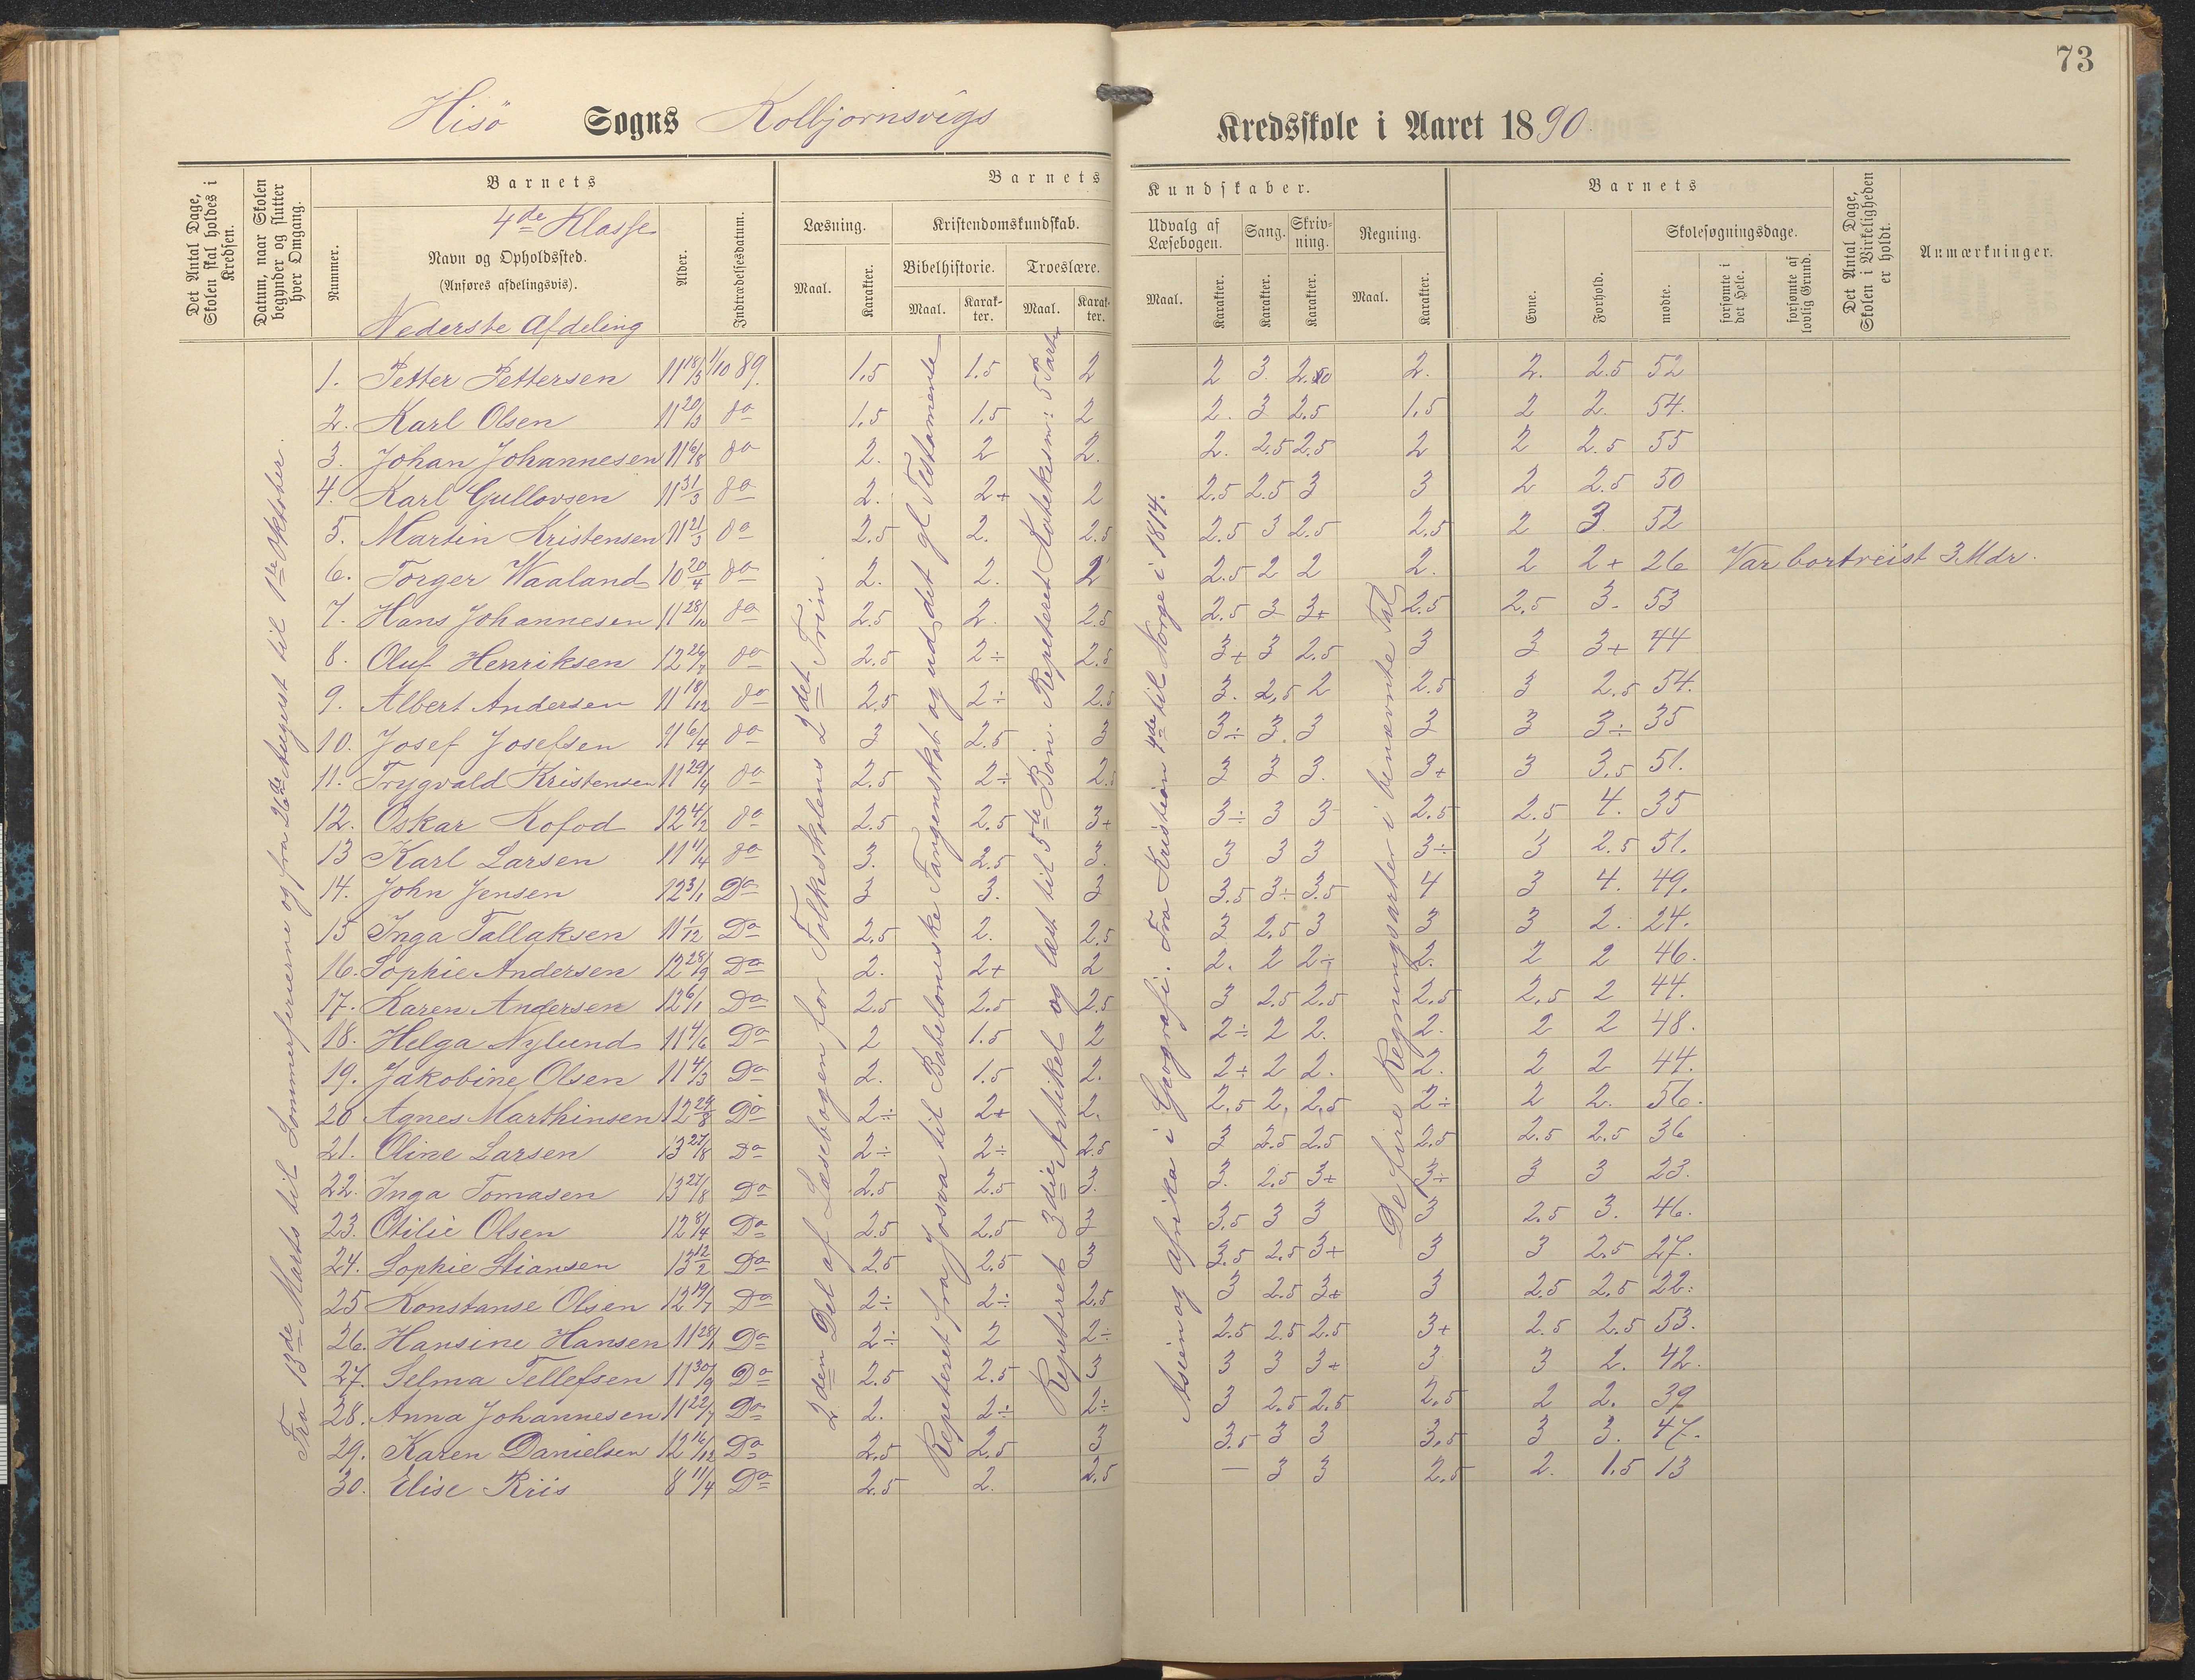 73
Hisö Sogns Kolbjornsvigs Kredsskole i Aaret 1890.
Det Antal Dage, Skolen skal holdes i Kredsen.
Datum, naar Skolen begynder og slutter hver Omgang.
Barnets
Nummer.
4de Klasse
Navn og Opholdssted.
(Anføres afdelingsvis).
Nederste Afdeling
Alder.
Indtrædelsesdatum.
Barnets Kundskaber.
Læsning. Kristendomskundskab. Udvalg af Læsebogen. Sang. Skrivning. Regning.
Bibelhistorie. Troeslære.
Maal. Karakter. Maal. Karakter. Maal. Karakter. Maal. Karakter. Karakter. Karakter. Maal. Karakter.
Barnets
Evne. Forhold. Skolesøgningsdage.
mødte. forsømte i det Hele. forsømte af lovlig Grund.
Det Antal Dage, Skolen i Virkeligheden er holdt.
Anmærkninger.
Fra 13de Marts til Sommerferierne og fra 26de August til 1ste Oktober.
2den Del af Læsebogen for Folkeskolens 2det Trin.
Repeteret fra Josva til Babeloneske Fangenskab og ud det gl Testamente
Repeteret 3die Artikel og læst til 5te Bøn. Repeteret Katekism: 5 Parter
Asien og Afrika i Geografi. Fra Kristian 4de til Norge i 1814.
De fire Regningsarter i benævnte Tal
1. Petter Pettersen 11 18/3 1/10 89. 1,5 1.5 2 2 3. 2.50 2. 2. 2.5 52
2. Karl Olsen 11 20/3 do 1,5 1,5 2 2. 3 2.5 1,5 2 2. 54.
3. Johan Johannesen 11 6/8 do 2. 2 2. 2. 2.5 2.5 2 2 2.5 55
4. Karl Gullovsen 11 31/3 do 2. 2+ 2 2.5 2.5 3 3 2 2.5 50
5. Martin Kristensen 11 21/3 do 2.5 2. 2.5 2.5 3 2.5 2.5 2 3 52
6. Torger Waaland 10 20/4 do 2. 2. 2 2.5 2 2 2. 2 2+ 26 Var bortreist 3. Mdr.
7. Hans Johannesen 11 28/10 do 2.5 2. 2.5 2.5 3 3+ 2.5 2.5 3. 53
8. Oluf Henriksen 12 26/7 do 2.5 2÷ 2.5 3+ 3 2.5 3 3 3+ 44
9. Albert Andersen 11 18/12 do 2.5 2÷ 2.5 3. 2,5 2 2.5 3 2.5 54.
10. Josef Josefsen 11 6/4 do 3 2.5 3 3÷ 3. 3 3 3 3÷ 35
11. Trygvald Kristensen 11 29/4 do 2.5 2÷ 2.5 3 3 3. 3+ 3 3.5 51.
12. Oskar Kofod 12 4/2 do 2.5 2.5 3+ 3÷ 3 3 2.5 2.5 4. 35
13 Karl Larsen 11 1/4 do 3. 2.5 3. 3 3 3 3÷ 3 2.5 51.
14. John Jensen 12 3/1 Do 3 3. 3 3.5 3÷ 3.5 4 3 4. 49.
15 Inga Tallaksen 11 1/12 Do 2.5 2. 2.5 3 2.5 3 3 3 2. 24.
16. Sophie Andersen 12 28/9 Do 2. 2+ 2 2. 2 2÷ 2. 2 2 46.
17. Karen Andersen 12 6/1 Do 2.5 2.5 2.5 3 2.5 2.5 2.5 2.5 2 44.
18. Helga Nylund 11 4/6 Do 2 1.5 2 2÷ 2 2. 2. 2 2 48.
19. Jakobine Olsen 11 4/3 Do 2. 1.5 2. 2÷ 2 2. 2. 2 2 44.
20 Agnes Marthinsen 12 29/8 Do 2÷ 2+ 2. 2.5 2. 2.5 2÷ 2 2. 56.
21. Oline Larsen 13 27/8 Do 2÷ 2÷ 2.5 3 2.5 2.5 2.5 2.5 2.5 36
22. Inga Tomasen 13 27/8 Do 2.5 2.5 3. 3. 2.5 3+ 3÷ 3 3 23.
23. Otilie Olsen 12 8/4 Do 2.5 2.5 3 3.5 3 3 3 2.5 3. 46.
24. Sophie Stiansen 13 12/2 Do 2.5 2.5 3 3.5 2.5 3+ 3 3 2.5 27.
25 Konstanse Olsen 12 19/7 Do 2÷ 2÷ 2.5 3 2.5 3+ 3 2.5 2.5 22.
26. Hansine Hansen 11 28/1 Do 2÷ 2 2÷ 2.5 2.5 2.5 3+ 2.5 2.5 53.
27. Selma Tellefsen 11 30/9 Do 2.5 2.5 3 3 3 3+ 3 3 2. 42.
28. Anna Johannesen 11 22/7 Do 2. 2÷ 2÷ 3 2.5 2.5 2.5 2 2. 39
29. Karen Danielsen 12 16/12 Do 2.5 2.5 3 3.5 3 3 3.5 3 3. 47.
30. Elise Riis 8 11/4 Do 2.5 2. 2.5 — 3 3 2.5 2. 1.5 13